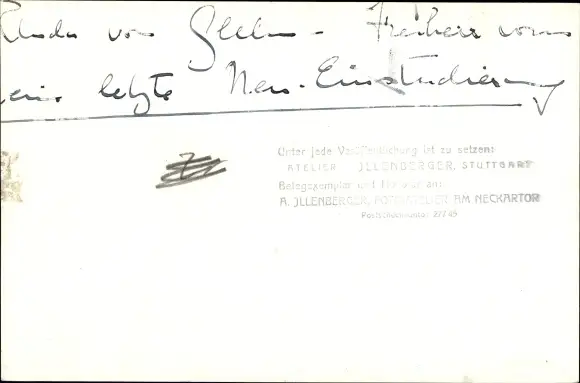 von Freiherr vom
letzte Neu-Einstudierung
Unter jede Veröffentlichung ist zu setzen:
ATELIER JLLENBERGER, STUTTGART
Belegexemplar und Honorar an:
A. JLLENBERGER, FOTOATELIER AM NECKARTOR
Postscheckkonto: 27745